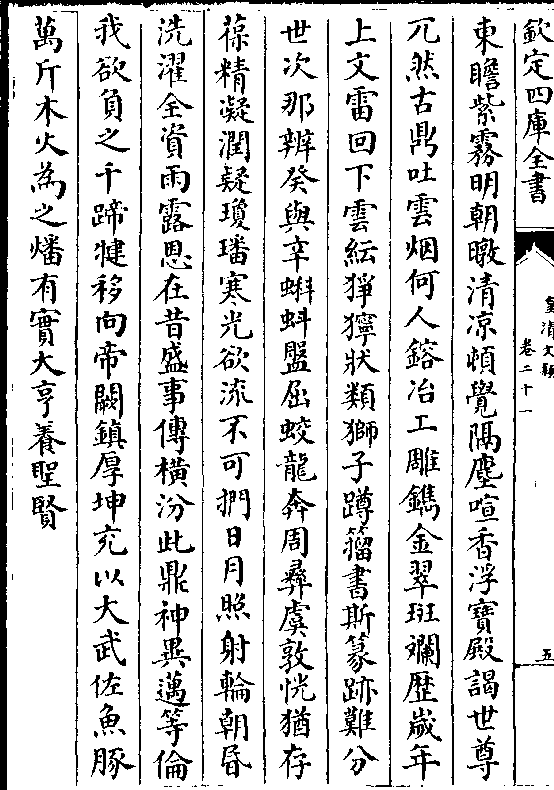 欽定四庫全書
皇清文穎
卷二十一
五
東瞻紫霧明朝暾清涼頓覺隔塵喧香浮寶殿謁世尊
兀然古鼎吐雲烟何人鎔冶工雕鐫金翠斑斕歴嵗年
上文雷回下雲紜猙獰狀類獅子蹲籀書斯篆跡難分
世次那辨癸與辛蝌蚪盤屈蛟龍奔周彞虞敦恍猶存
葆精凝潤疑瓊璠寒光欲流不可捫日月照射輪朝昏
洗濯全資雨露恩在昔盛事傳橫汾此鼎神異邁等倫
我欲負之千蹄犍移向帝闕鎮厚坤充以大武佐魚豚
萬斤木火為之燔有實大亨養聖賢